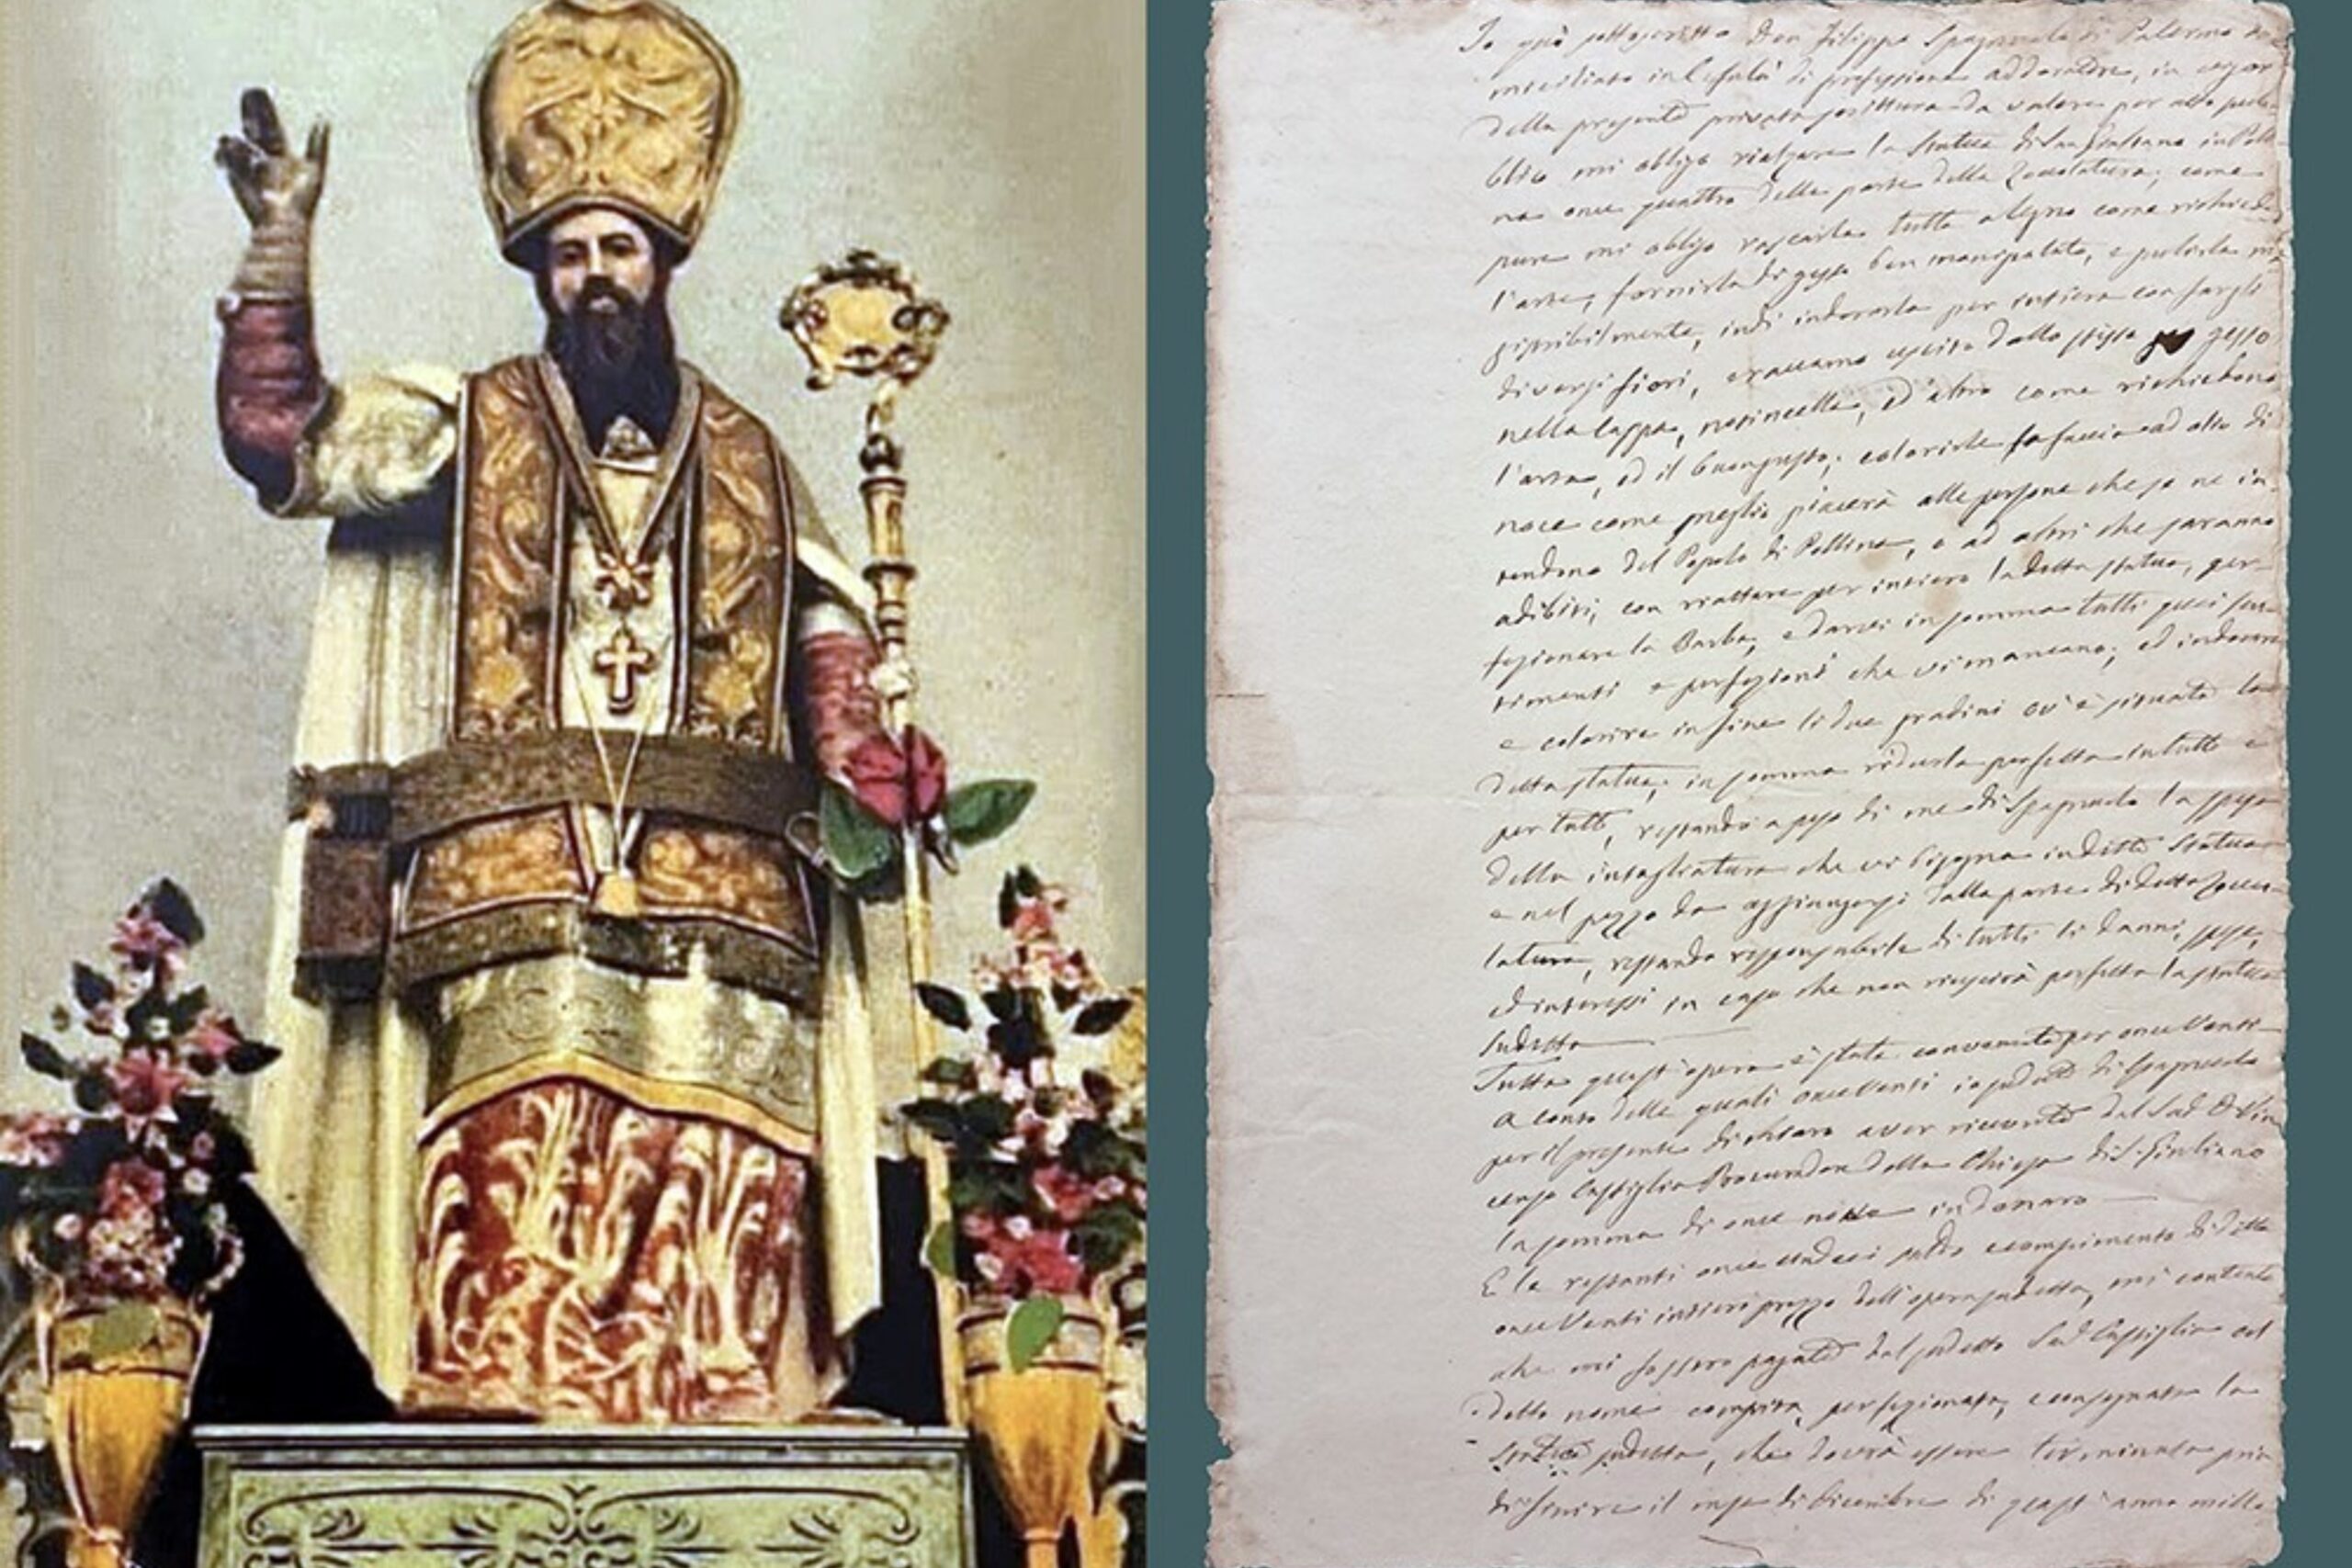 Io quì sottoscritto Don Filippo Spagnuolo di Palermo do-
miciliato in Cefalù di professione addoratore, in vigor
della presente privata scrittura da valere per atto pub-
blico mi obligo rialzare la Statua di San Giuliano in Polli-
na once quattro dalla parte della Zoccolatura, come
pure mi obligo rascarla tutta a legno come richiede
l'arte, fornirla di gesso ben manipolato, e pulirla
, indi indorarla per intiero con
diversi fiori, e raccamo dello stesso gesso
nella Cappa, , ed altro come richiedono
l'arte, ed il buongusto; colorirle la faccia ad olio di
noce come meglio piacerà alle persone che se ne in-
tendono del Popolo di Pollina, e ad altri che saranno
adibiti, con riattare per intiero la detta statua, per-
fezionare la Barba, e darci in somma tutti quei
e perfezioni che vi mancano; ed indorare
e colorire in fine li due gradini ov'è situata la
detta statua; in somma ridurla perfetta in tutto e
per tutto, restando a peso di me di Spagnuolo la spesa
della che vi bisogna in detta Statua
e nel pezzo da aggiungersi dalla parte di detta Zocco-
latura, restando responsabile di tutti li danni, spese,
ed interessi in caso che non riuscirà perfetta la statua
sudetta
Tutta quest'opera è stata convenuta per once Venti
a conto delle quali once Venti io sudetto di Spagnuolo
per il presente dichiaro aver ricevuto dal Sud. D. Vin-
cenzo Castiglia Procuradore della Chiesa di S. Giuliano
la somma di once nove in denaro
E le restanti once undeci a compimento di dette
once Venti intiero prezzo dell'opera sudetta, mi contento
che mi fossero pagate dal sudetto Sud. Castiglia
detto nome compita, perfezionata, e consegnata la
Statua sudetta, che dovrà essere terminata pria
di finire il mese di Dicembre di quest'anno mille